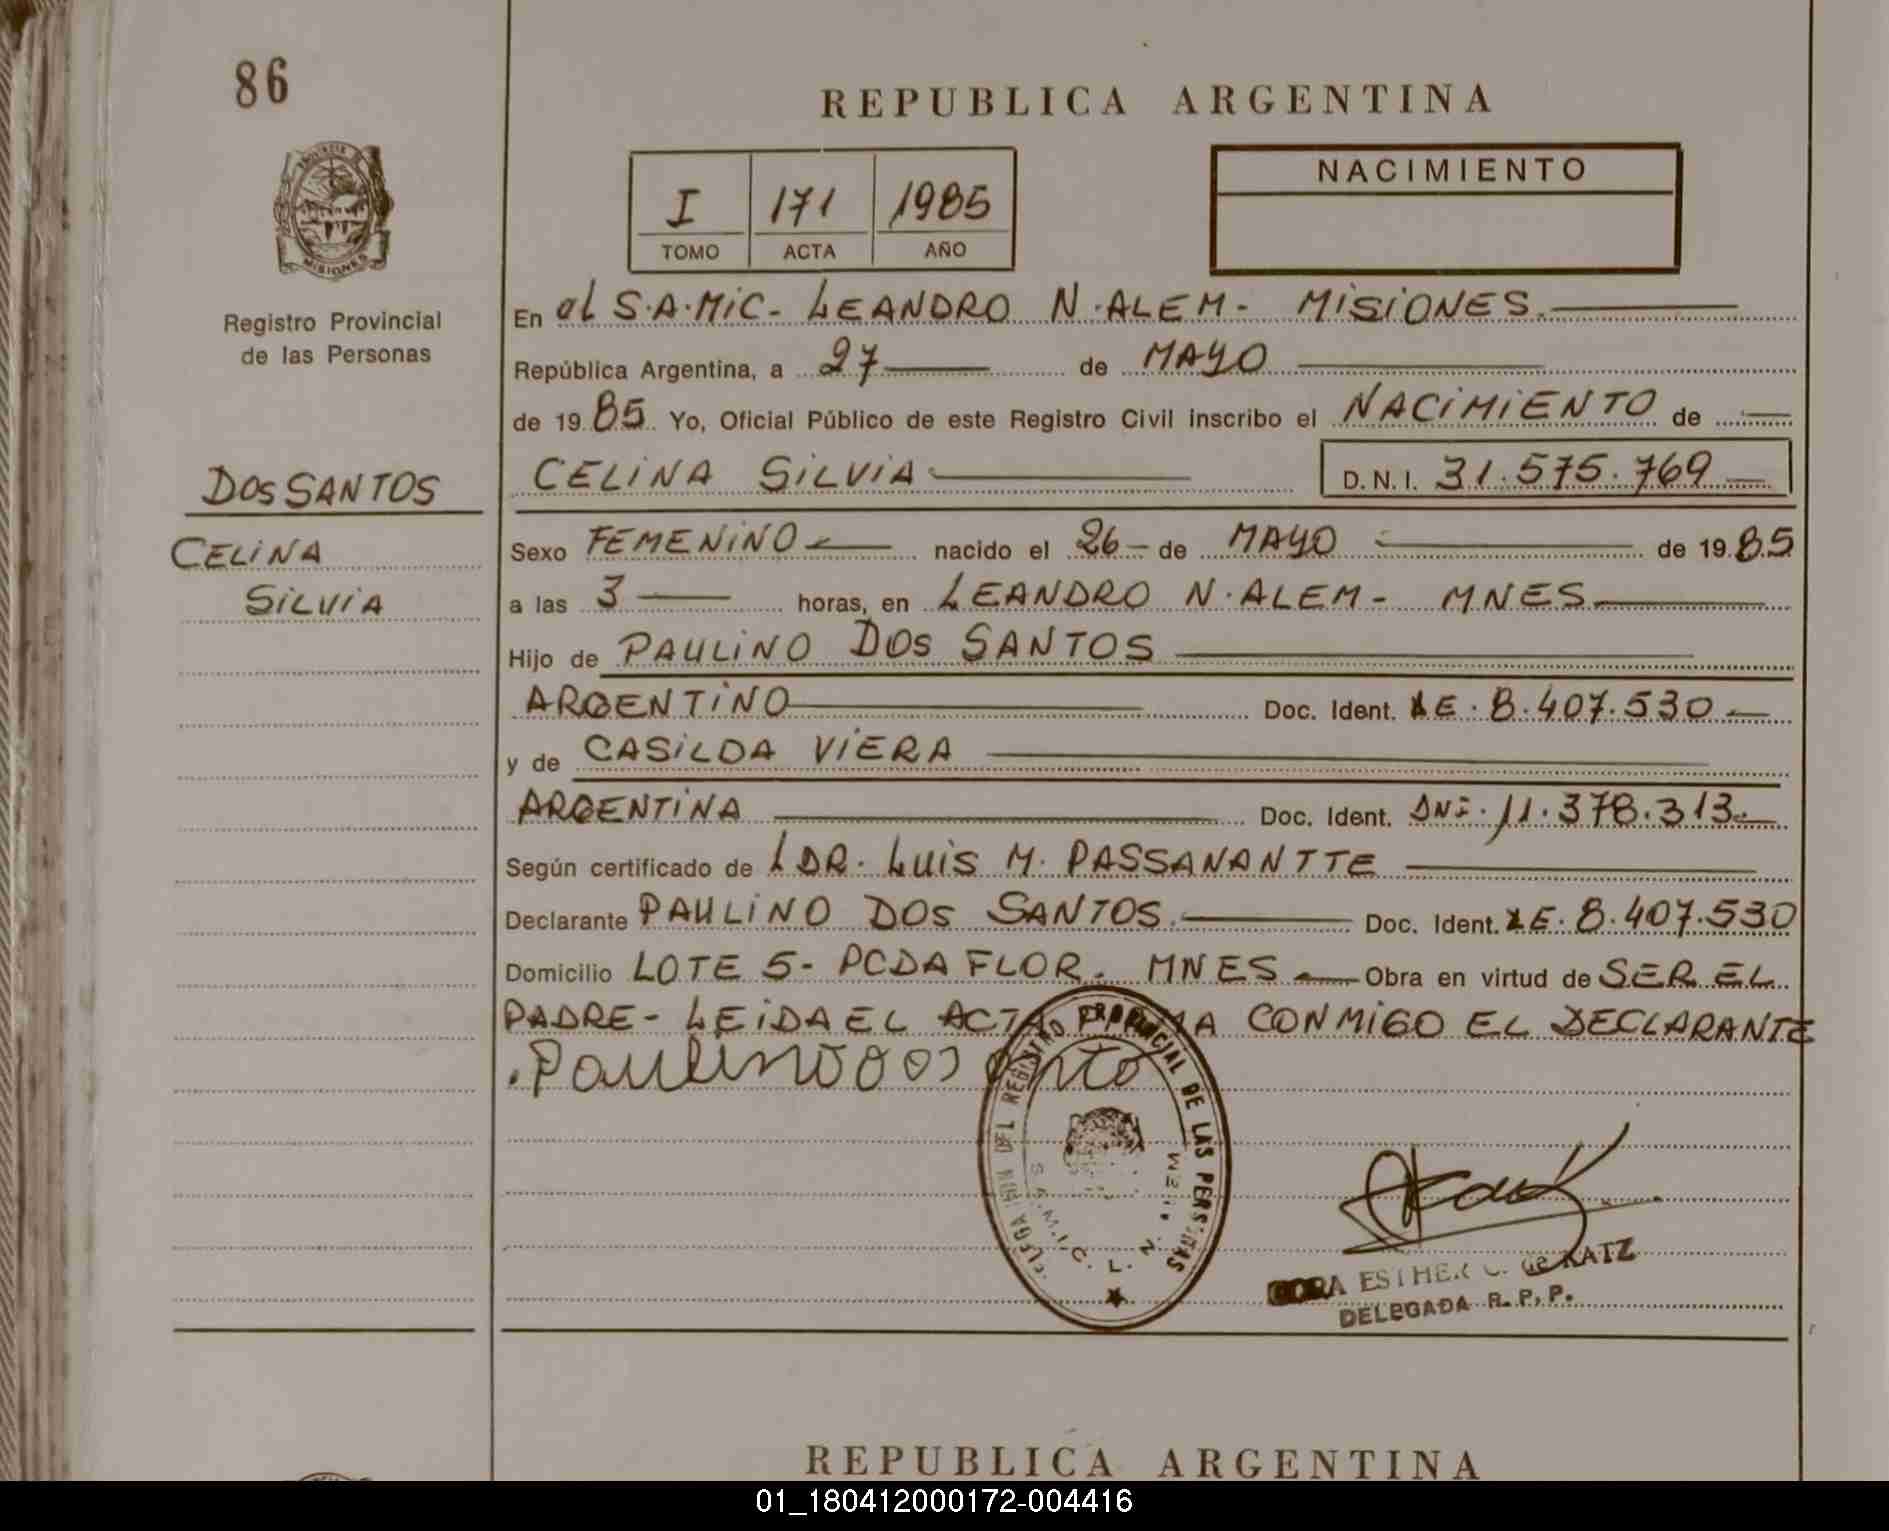 86
REPUBLICA ARGENTINA
PROVINCIA DE
MISIONES
Registro Provincial
de las Personas
I 171 1985
TOMO ACTA AÑO
NACIMIENTO
En el S.A.MiC- LEANDRO N.ALEM- MiSiONES.
República Argentina, a 27 de MAYO
de 1985 Yo, Oficial Público de este Registro Civil inscribo el NACiMiENTO de
CELiNA SiLViA D.N.I. 31.575.769
DOS SANTOS
CELiNA
SiLViA
Sexo FEMENiNO nacido el 26 de MAYO de 1985
a las 3 horas, en LEANDRO N.ALEM- MNES
Hijo de PAULiNO DOS SANTOS
ARGENTiNO Doc. Ident. LE. 8.407.530
y de CASiLDA ViERA
ARGENTiNA Doc. Ident. DNI. 11.378.313
Según certificado de LDR. LUiS M. PASSANANTTE
Declarante PAULiNO DOS SANTOS. Doc. Ident. LE. 8.407.530
Domicilio LOTE 5- PCDA FLOR. MNES Obra en virtud de SER EL
PADRE- LEiDA EL ACTA FiRMA CONMiGO EL DECLARANTE
Paulino
DEL REGISTRO PROVINCIAL DE LAS PERSONAS
S.A.M.I.C. L. N. ALEM
ESTHER C. de KATZ
DELEGADA R. P. P.
REPUBLICA ARGENTINA
01_180412000172-004416